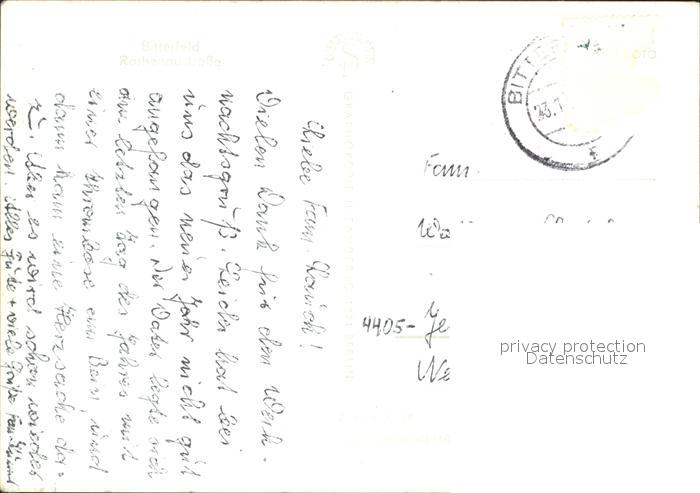 Bitterfeld
Rathenaustraße
Liebe Fam.
Vielen Dank für den Weih-
nachtsgruß. Leider hat bei
uns das neue Jahr nicht gut
angefangen. Der Vater legte sich
am letzten Tag des Jahres mit
einer Thrombose am Bein, und
dann kam eine Herzsache da-
zu. Aber es wird schon wieder
werden. Alles Gute + viele Grüße Fam.
BITTERF
23.1
Fam.
4405-
privacy protection
Datenschutz